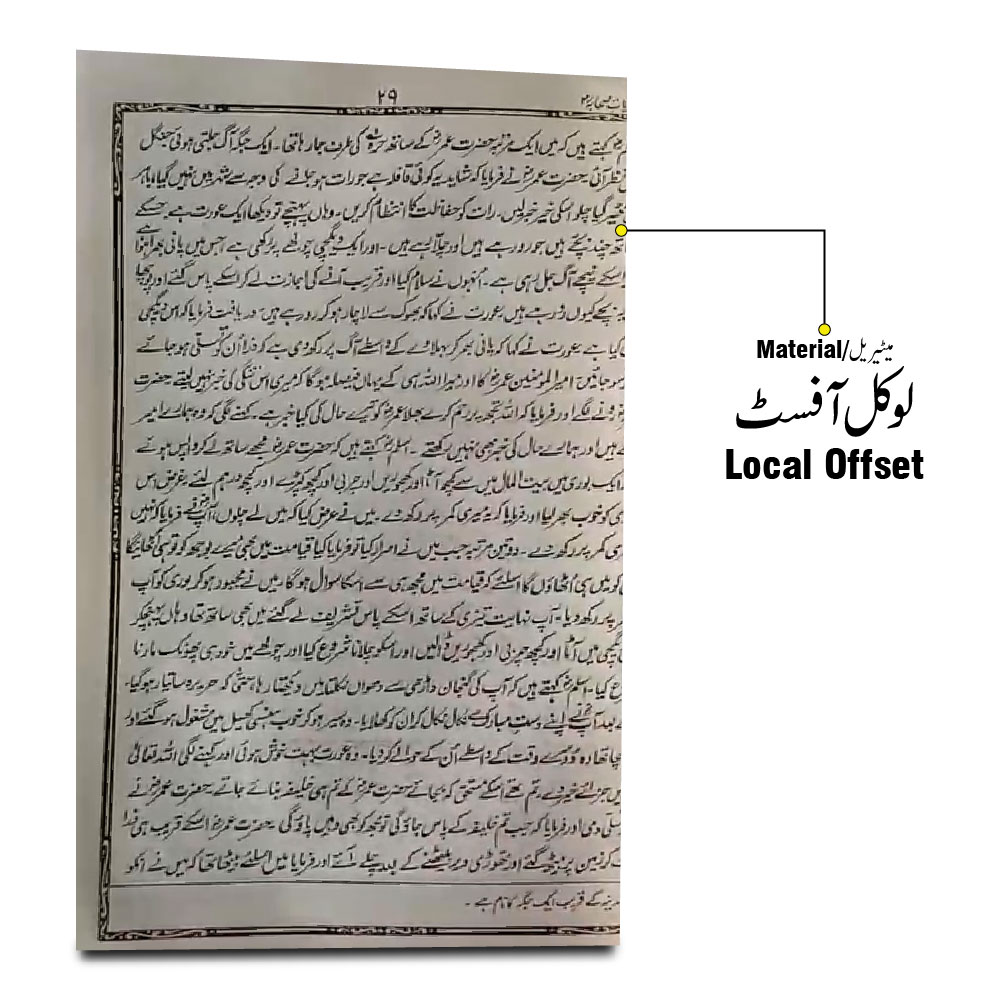 ۲۹
کہتے ہیں کہ میں ایک مرتبہ حضرت عمرؓ کے ساتھ حرہ کی طرف جا رہا تھا۔ ایک جگہ آگ جلتی ہوئی جنگل
نظر آئی۔ حضرت عمرؓ نے فرمایا کہ شاید یہ کوئی قافلہ ہے جو رات ہو جانے کی وجہ سے شہر میں نہیں گیا باہر
گیا چلو اسکی خیر خبر لیں۔ رات کو حفاظت کا انتظام کریں۔ وہاں پہنچے تو دیکھا ایک عورت ہے جسکے
چند بچے ہیں جو رو رہے ہیں اور چلا رہے ہیں۔ اور ایک دیگچی چولھے پر رکھی ہے جس میں پانی بھرا ہوا ہے
اسکے نیچے آگ جل رہی ہے۔ انہوں نے سلام کیا اور قریب آنے کی اجازت لے کر اسکے پاس گئے اور پوچھا
بچے کیوں رو رہے ہیں عورت نے کہا کہ بھوک سے لاچار ہو کر رو رہے ہیں۔ دریافت فرمایا کہ اس دیگچی
کیا ہے عورت نے کہا کہ پانی بھر کر بہلانے کے واسطے آگ پر رکھدی ہے کہ ذرا ان کو تسلی ہو جائے
سو جائیں۔ امیر المؤمنین عمرؓ کا اور میرا اللہ ہی کے یہاں فیصلہ ہوگا کہ میری اس تنگی کی خبر نہیں لیتے حضرت
رونے لگے اور فرمایا کہ اللہ تجھ پر رحم کرے بھلا عمرؓ کو تیرے حال کی کیا خبر ہے۔ کہنے لگی کہ وہ ہمارے امیر
ہیں اور ہمارے حال کی خبر بھی نہیں رکھتے۔ اسلمؓ کہتے ہیں کہ حضرت عمرؓ مجھے ساتھ لے کر واپس ہوئے
ایک بوری میں بیت المال میں سے کچھ آٹا اور کھجوریں اور چربی اور کچھ کپڑے اور کچھ درہم لئے۔ غرض اس
کو خوب بھر لیا اور فرمایا کہ یہ میری کمر پر رکھ دے۔ میں نے عرض کیا کہ میں لے چلوں، آپؓ نے فرمایا کہ نہیں
کمر پر رکھ دے۔ دو تین مرتبہ جب میں نے اصرار کیا تو فرمایا کیا قیامت میں بھی میرے بوجھ کو تو ہی اٹھائیگا
کو میں ہی اٹھاؤں گا اسلئے کہ قیامت میں مجھ ہی سے اسکا سوال ہوگا۔ میں نے مجبور ہو کر بوری کو آپ
پر رکھدیا۔ آپ نہایت تیزی کے ساتھ اسکے پاس تشریف لے گئے میں بھی ساتھ تھا وہاں پہنچکر
دیگچی میں آٹا اور کچھ چربی اور کھجوریں ڈالیں اور اسکو چلانا شروع کیا اور چولھے میں خود ہی پھونک مارنا
کیا۔ اسلمؓ کہتے ہیں کہ آپ کی گنجان داڑھی سے دھواں نکلتا میں دیکھتا رہا حتیٰ کہ حریرہ سا تیار ہو گیا۔
بعد آپؓ نے اپنے دست مبارک سے نکال نکال کر ان کو کھلایا۔ وہ سیر ہو کر خوب ہنسی کھیل میں مشغول ہو گئے اور
بچا تھا وہ دوسرے وقت کے واسطے ان کے حوالے کر دیا۔ وہ عورت بہت خوش ہوئی اور کہنے لگی اللہ تعالیٰ
جزائے خیر دے۔ تم تھے اسکے مستحق کہ بجائے حضرت عمرؓ کے تم ہی خلیفہ بنائے جاتے۔ حضرت عمرؓ نے
تسلی دی اور فرمایا کہ جب تم خلیفہ کے پاس جاؤ گی تو مجھ کو بھی وہیں پاؤ گی۔ حضرت عمرؓ اسکے قریب ہی ذرا
کر زمین پر بیٹھ گئے اور تھوڑی دیر بیٹھنے کے بعد چلے آئے اور فرمایا میں اسلئے بیٹھا تھا کہ میں نے انکو
مدینہ کے قریب ایک جگہ کا نام ہے۔
Material/میٹیریل
لوکل آفسٹ
Local Offset